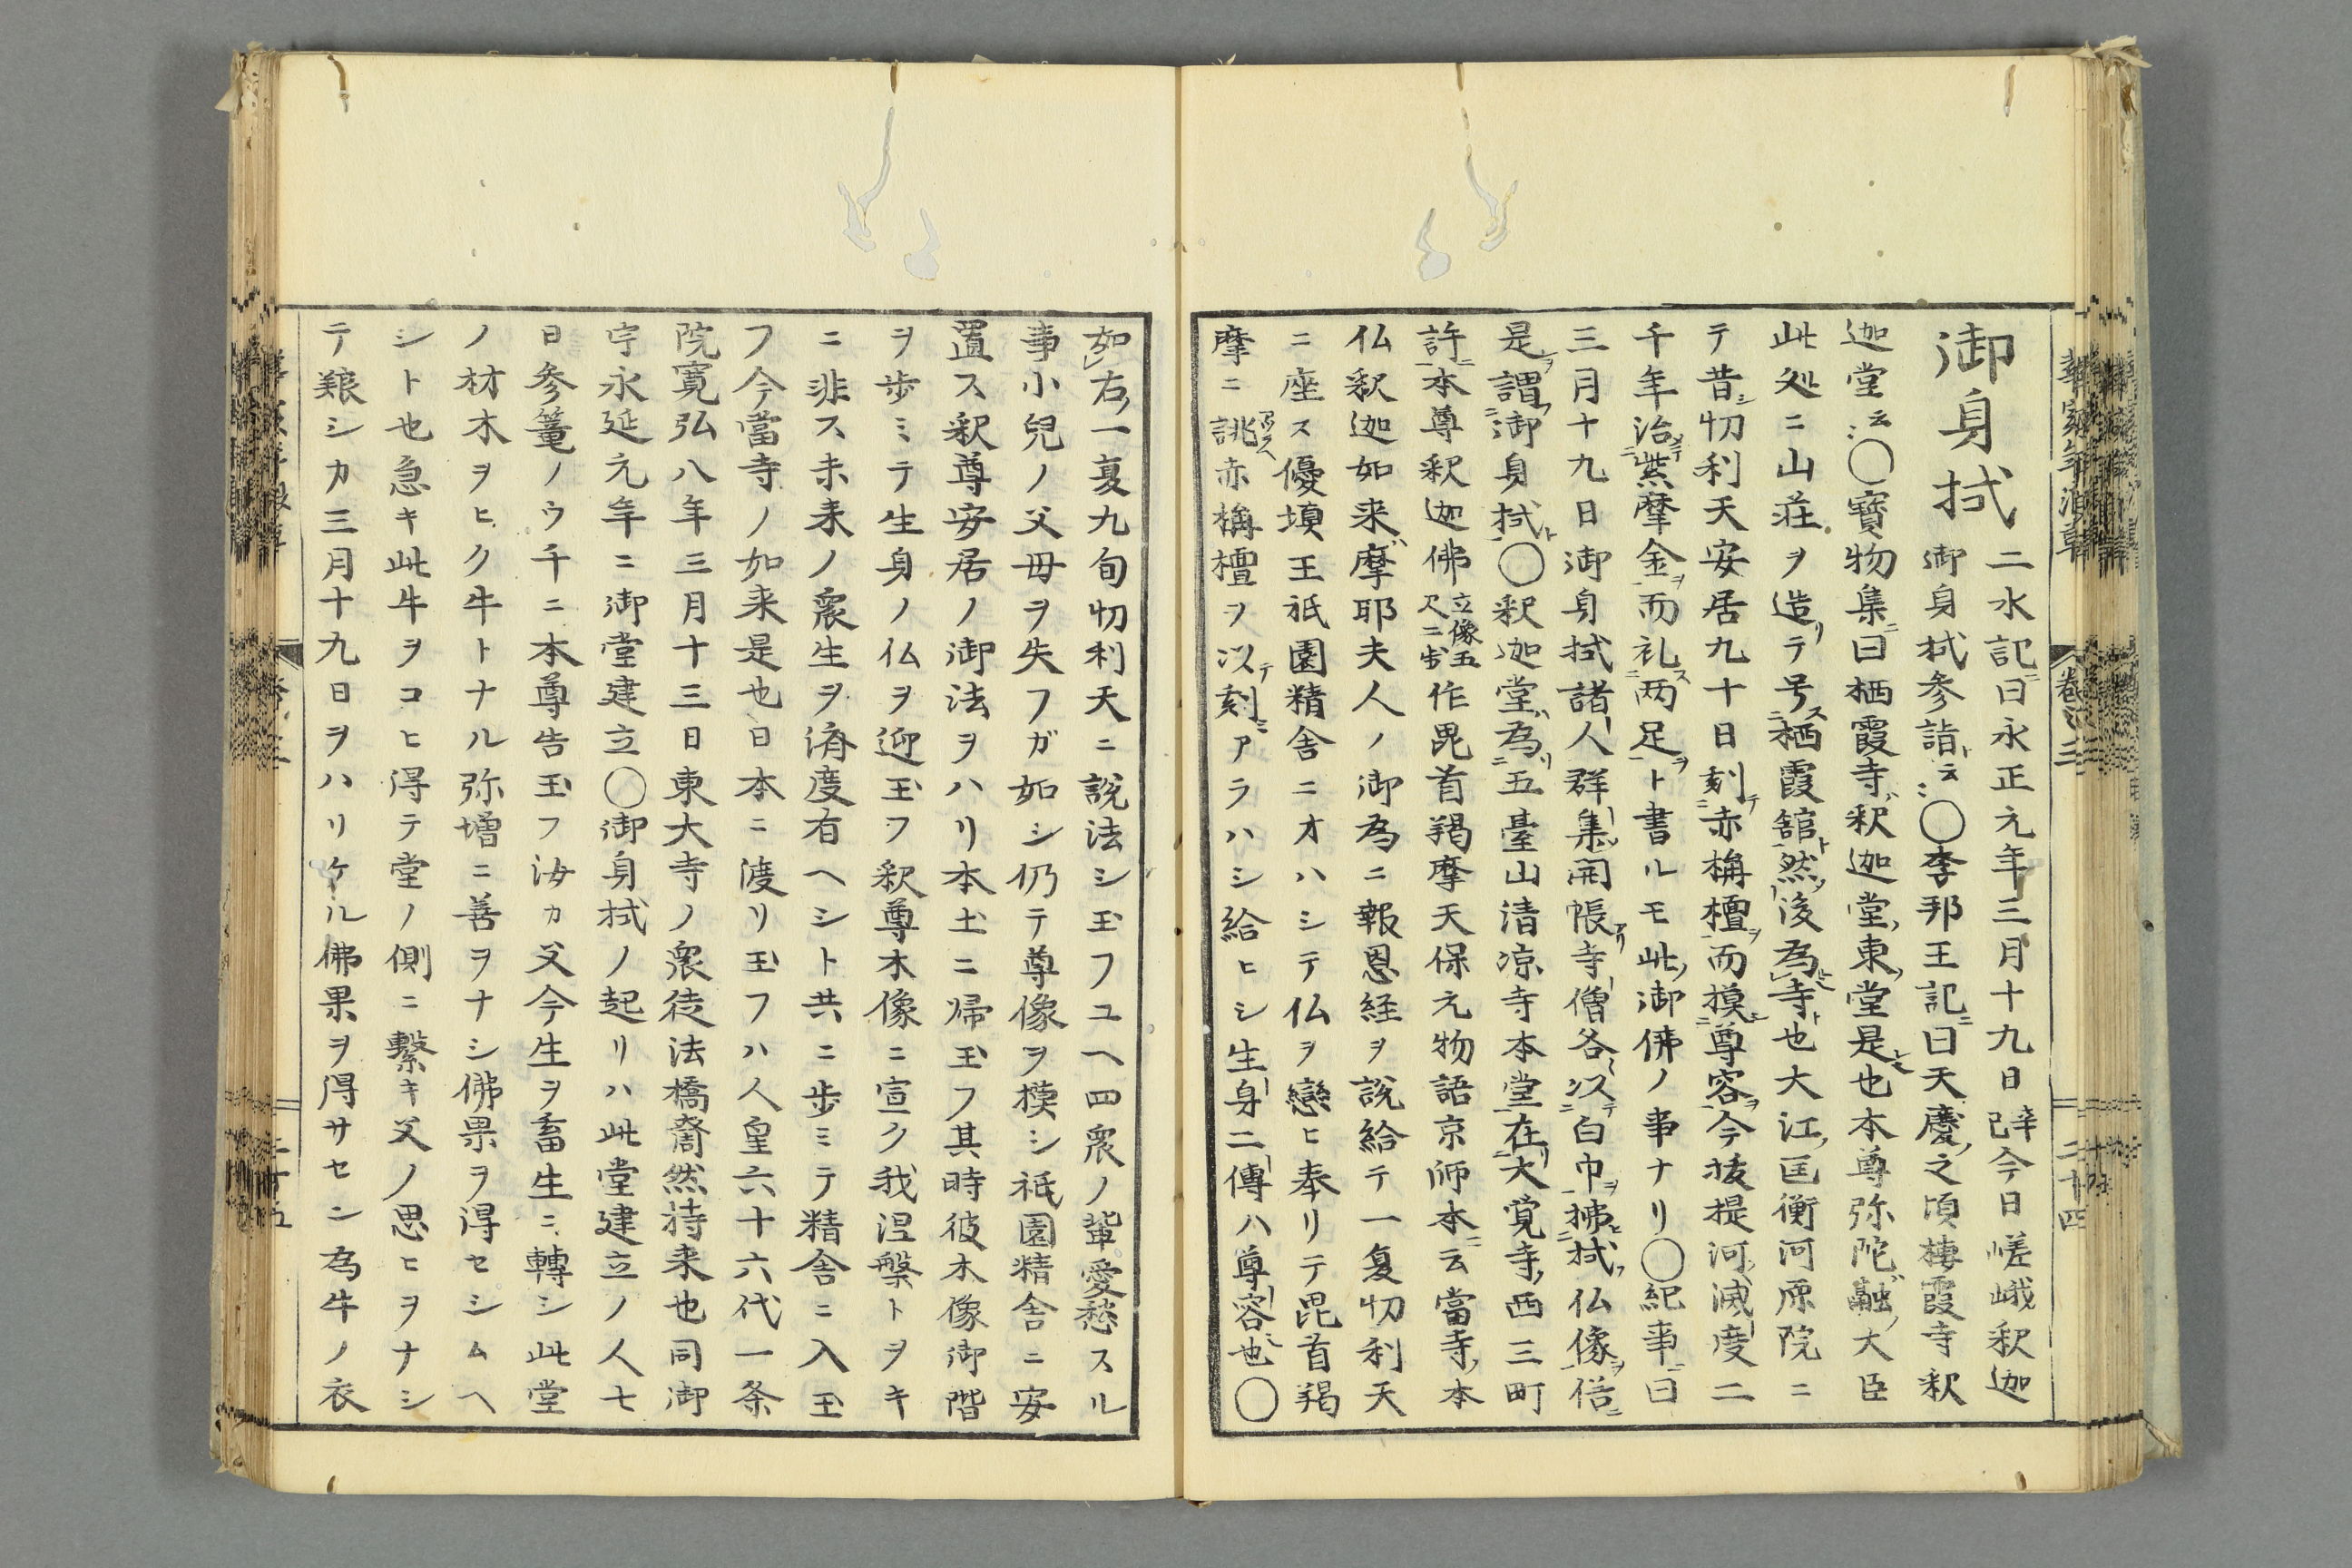 御身拭 二水記ニ曰永正元年三月十九日辛巳今日嵯峨釈迦
御身拭参詣ト云〻〇李部王記ニ曰天慶ノ之頃棲霞寺釈
迦堂云〻〇寶物集ニ曰栖霞寺釈迦堂ノ東ノ堂是也本尊弥陀融ノ大臣
此処ニ山荘ヲ造リテ号ス栖霞舘ト然ノ後為寺ト也大江ノ匡衡河原院ニ
テ昔シ忉利天安居九十日刻テ赤栴檀ヲ而摸シ尊容ヲ今抜提河ノ滅度二
千年治メテ紫摩金ヲ而礼ス两足ヲト書ルモ此ノ御佛ノ事ナリ〇紀事ニ曰
三月十九日御身拭諸人群集開帳アリ寺僧各〻以テ白巾ヲ拂ヒ拭フ仏像ヲ俗ニ
是ヲ謂フ御身拭ト〇釈迦堂ハ為リ五臺山清凉寺本堂在リ大覚寺ノ西三町
許ニ本尊釈迦佛立像五尺二寸作毘首羯摩天保元物語京師本ニ云當寺ノ本
仏釈迦如来摩耶夫人ノ御為ニ報恩経ヲ説給テ一夏忉利天
ニ座ス優填王祇園精舎ニオハシテ仏ヲ戀ヒ奉リテ毘首羯
摩ニ誂アツラヘ赤栴檀ヲ以テ刻ミアラハシ給ヒシ生身二傳ハ尊容也〇
如右ノ一夏九旬忉利天ニ説法シ玉フユヘ四衆ノ輩愛愁スル
事小兒ノ父母ヲ失フガ如シ仍テ尊像ヲ模シ祇園精舎ニ安
置ス釈尊安居ノ御法ヲハリ本土ニ帰玉フ其時彼木像御階
ヲ歩ミテ生身ノ仏ヲ迎玉フ釈尊木像ニ宣ク我涅槃トヲキ
ニ非ス未来ノ衆生ヲ済度有ヘシト共ニ歩ミテ精舎ニ入玉
フ今當寺ノ如来是也日本ニ渡リ玉フハ人皇六十六代一条
院寛弘八年三月十三日東大寺ノ衆徒法橋奝然持来也同御
宇永延元年ニ御堂建立〇御身拭ノ起リハ此堂建立ノ人七
日参篭ノウチニ本尊告玉フ汝カ父今生ヲ畜生ニ轉シ此堂
ノ材木ヲヒク牛トナル弥増ニ善ヲナシ佛果ヲ得セシムヘ
シト也急キ此牛ヲコヒ得テ堂ノ側ニ繋キ父ノ思ヒヲナシ
テ粮シカ三月十九日ヲハリケル佛果ヲ得サセシ為牛ノ衣